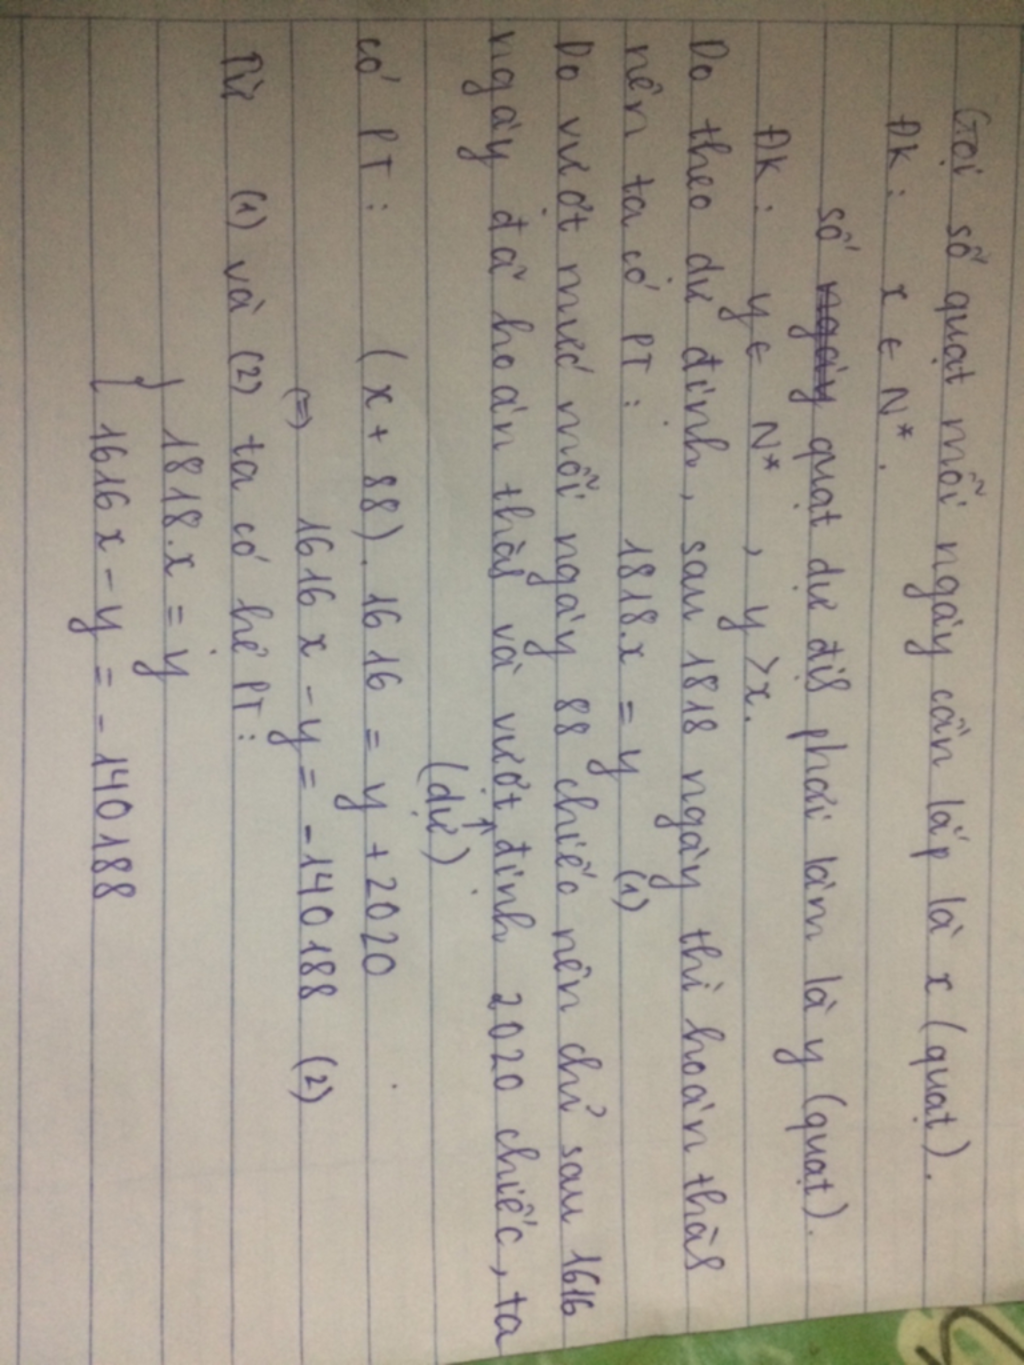 Gọi số quạt mỗi ngày cần lắp là x (quạt).
ĐK: x ∈ N*.
số ngày quạt dự địß phải làm là y (quạt).
ĐK: y ∈ N*, y > x.
Do theo dự định, sau 1818 ngày thì hoàn thàß
nên ta có PT: 1818.x = y (1)
Do vượt mức mỗi ngày 88 chiếc nên chỉ sau 1616
ngày đã hoàn thàß và vượt định 2020 chiếc, ta
(dự)
có PT: (x + 88).1616 = y + 2020
(=) 1616x - y = -140188 (2)
Từ (1) và (2) ta có hệ PT:
{ 1818.x = y
1616x - y = -140188